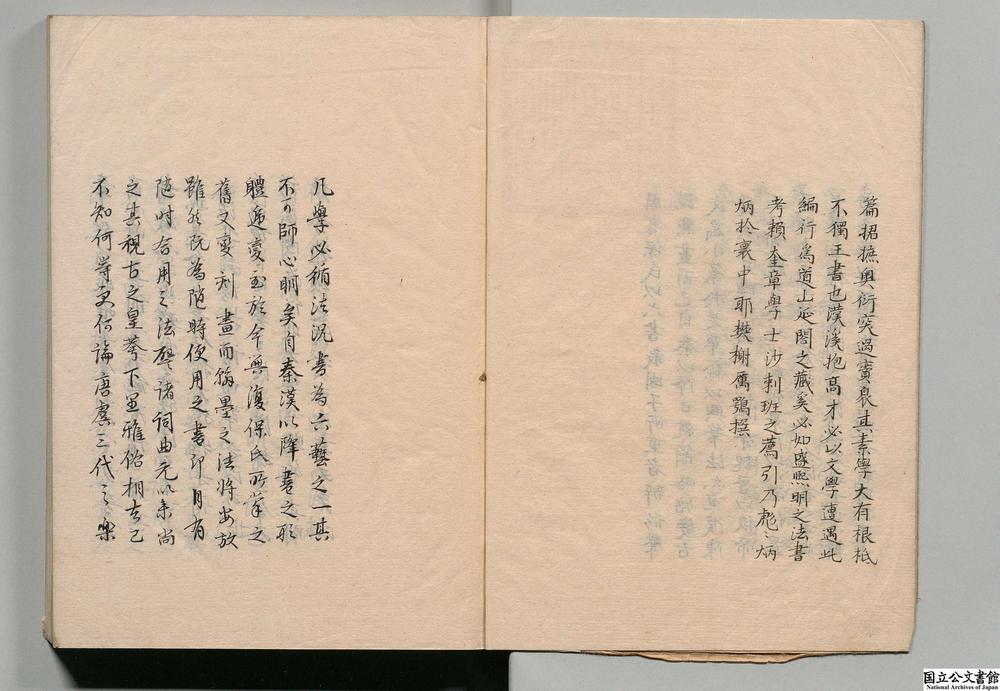 篇捃摭奥衍突過竇泉其素學大有根柢
不獨工書也濮溪抱高才必以文學遭遇此
編行爲道山延閣之藏奚必如盛熙明之法書
考賴奎章學士沙剌班之薦引乃彪〻炳
炳於寰中耶樊榭厲鶚撰
凡學必循法況書為六藝之一其
不可師心明矣自秦漢以降書之形
體遞變至於今無復保氏所掌之
舊又變刻畫而翰墨之法將出放
雖然既為隨時便用之書即自有
隨時合用之法譬諸詞曲元以来尚
之其視古之皇荂下里雅俗相去已
不知何等更何論唐虞三代之樂
国立公文書館
National Archives of Japan